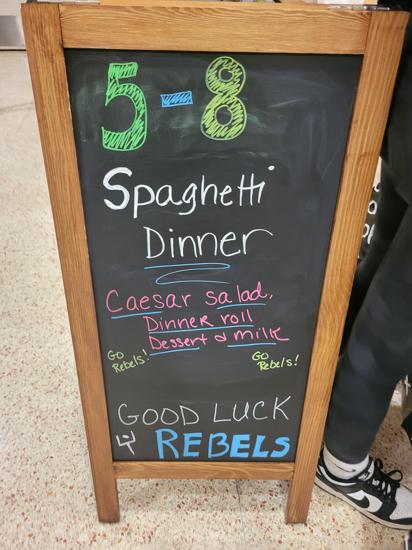 5-8
Spaghetti
Dinner
Caesar salad,
Dinner roll
Dessert & milk
Go
Rebels!
Go
Rebels!
GOOD LUCK
REBELS